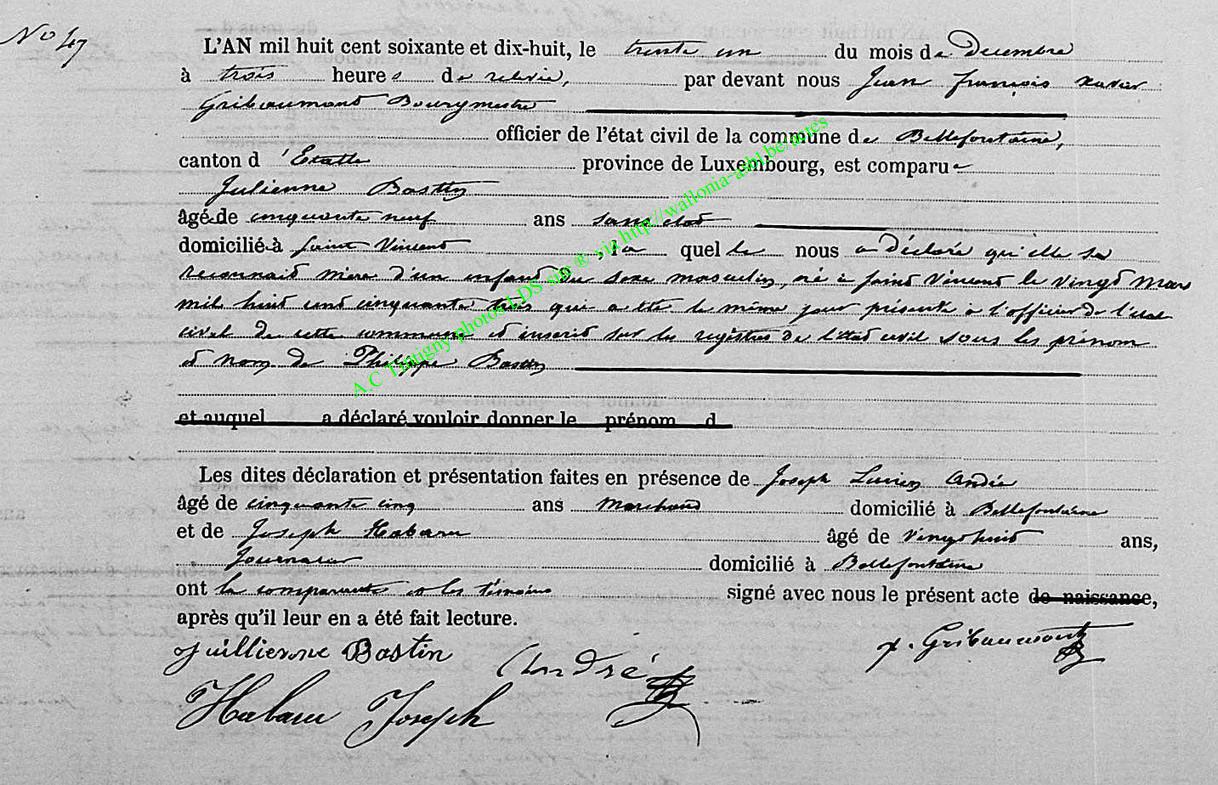 N° 47
L'AN mil huit cent soixante et dix-huit, le trente un du mois de Decembre
à trois heures de relevée, par devant nous Jean François Xavier
Gribaumont Bourgmestre
officier de l'état civil de la commune de Bellefontaine,
canton d'Etalle province de Luxembourg, est comparue
Julienne Bastin
âgé de cinquante neuf ans sans état
domicilié à Saint Vincent la quelle nous a déclaré qu'elle se
reconnait mère d'un enfant du sexe masculin, né à Saint Vincent le Vingt Mars
mil huit cent cinquante trois qui a été le même jour présenté à l'officier de l'état
civil de cette commune et inscrit sur les registres de l'état civil sous les prénom
et nom de Philippe Bastin
et auquel a déclaré vouloir donner le prénom d
Les dites déclaration et présentation faites en présence de Joseph Lucien André
âgé de cinquante cinq ans Marchand domicilié à Bellefontaine
et de Joseph Habaru âgé de vingt huit ans,
Journalier domicilié à Bellefontaine
ont la comparante et les témoins signé avec nous le présent acte de naissance,
après qu'il leur en a été fait lecture.
Juillienne Bastin André x. Gribaumont
Habaru Joseph
A.C Tintigny photos LDS sur ® via http://wallonia-asbl.be/actes